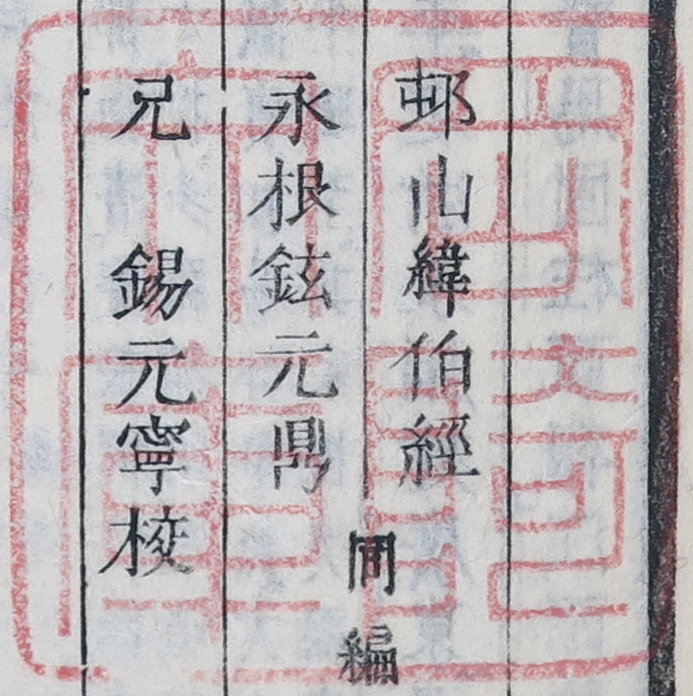 邨山緯伯經
永根鉉元鼎
同編
兄　錫元寧校